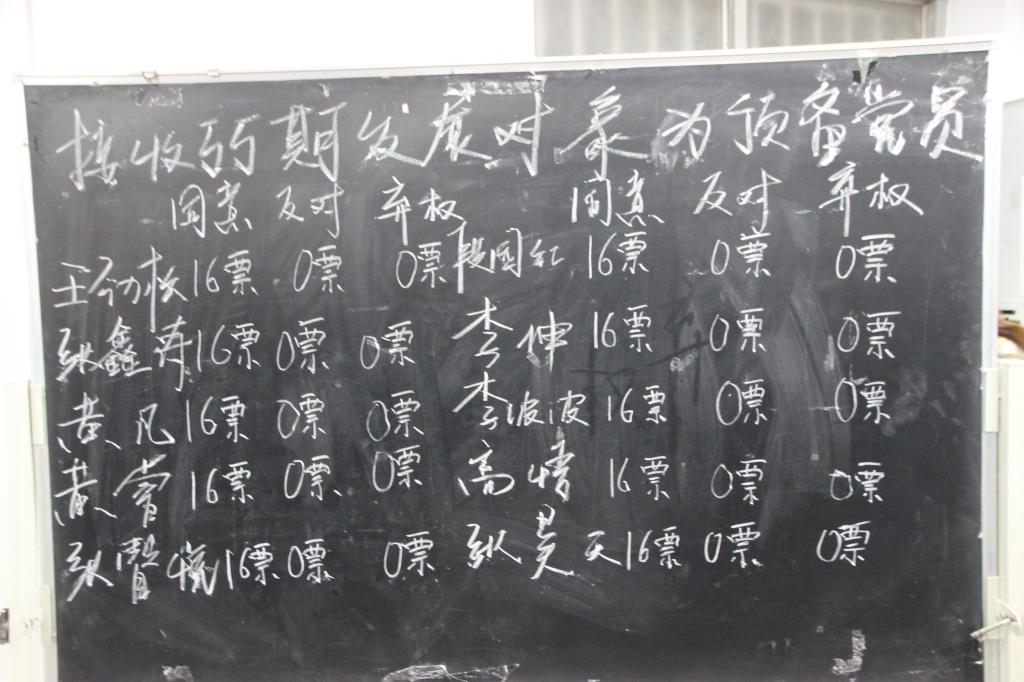 接收55期发展对象为预备党员
同意 反对 弃权 同意 反对 弃权
王 16票 0票 0票 段国红 16票 0票 0票
张鑫寿 16票 0票 0票 李伸 16票 0票 0票
黄凡 16票 0票 0票 李波波 16票 0票 0票
黄莹 16票 0票 0票 高情 16票 0票 0票
张 16票 0票 0票 张昊天 16票 0票 0票